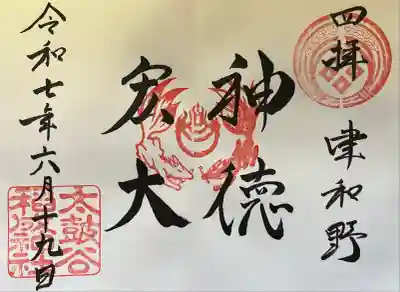 四拝
津和野
神徳
宏大
令和七年六月十九日
太鼓谷
稲成社